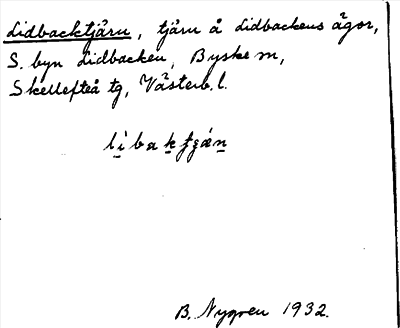 Lidbacktjärn, tjärn å Lidbackens ägor,
S. byn Lidbacken, Byske m,
Skellefteå tg, Västerb. l.
B. Nygren 1932.